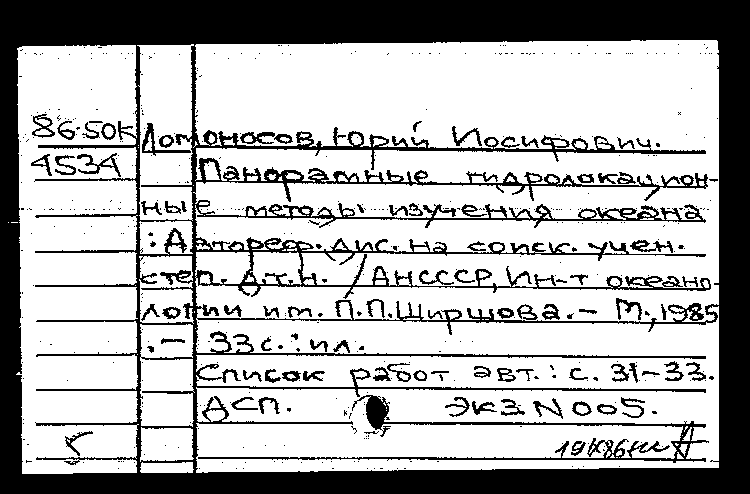 86-50К Ломоносов, Юрий Иосифович.
4534 Панорамные гидролокацион-
ные методы изучения океана
: Автореф. дис. на соиск. учен.
степ. д.т.н. / АНСССР, Ин-т океано-
логии им. П.П.Ширшова. – М., 1985
. – 33 с. : ил.
Список работ авт. : с. 31-33.
ДСП. Экз. N 005.
5